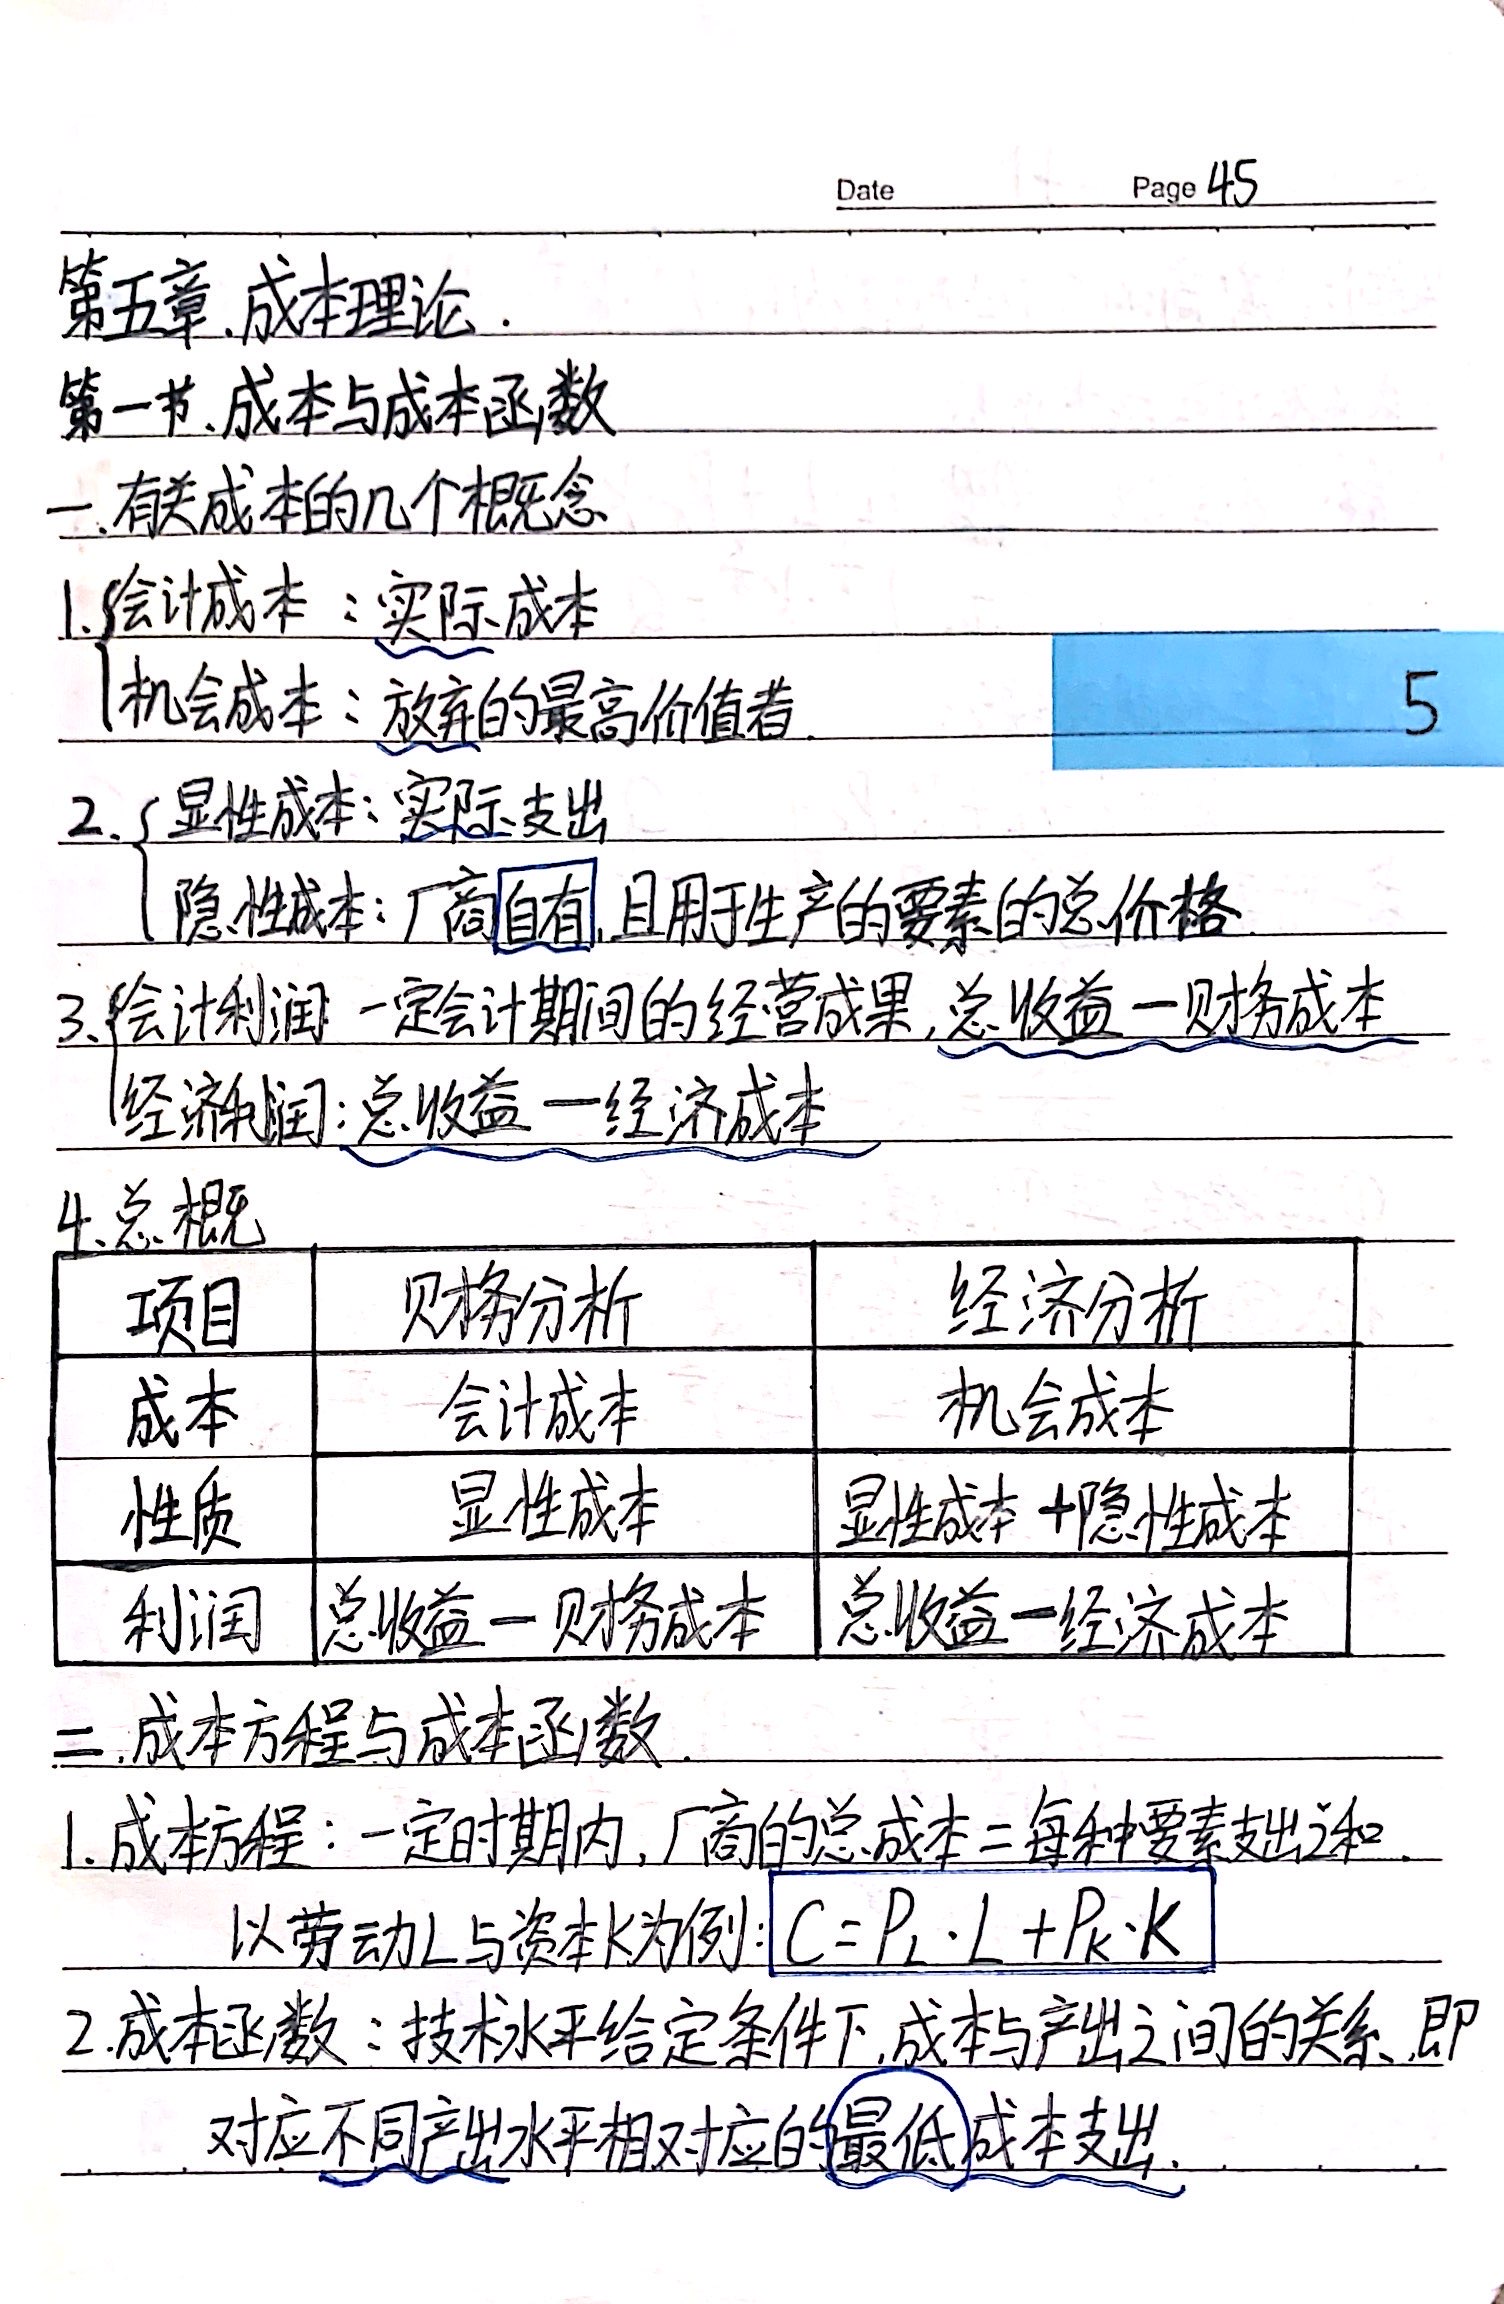 Date Page 45
第五章、成本理论.
第一节、成本与成本函数
一、有关成本的几个概念
1.{会计成本：实际成本
机会成本：放弃的最高价值者.
5
2.{显性成本：实际支出
隐性成本：厂商自有,且用于生产的要素的总价格.
3.{会计利润 一定会计期间的经营成果,总收益一财务成本
经济利润:总收益一经济成本
4、总概
项目 财务分析 经济分析
成本 会计成本 机会成本
性质 显性成本 显性成本+隐性成本
利润 总收益一财务成本 总收益一经济成本
二、成本方程与成本函数.
1.成本方程：一定时期内,厂商的总成本=每种要素支出之和.
以劳动L与资本K为例: C=PL·L+PK·K
2.成本函数：技术水平给定条件下,成本与产出之间的关系,即
对应不同产出水平相对应的最低成本支出.